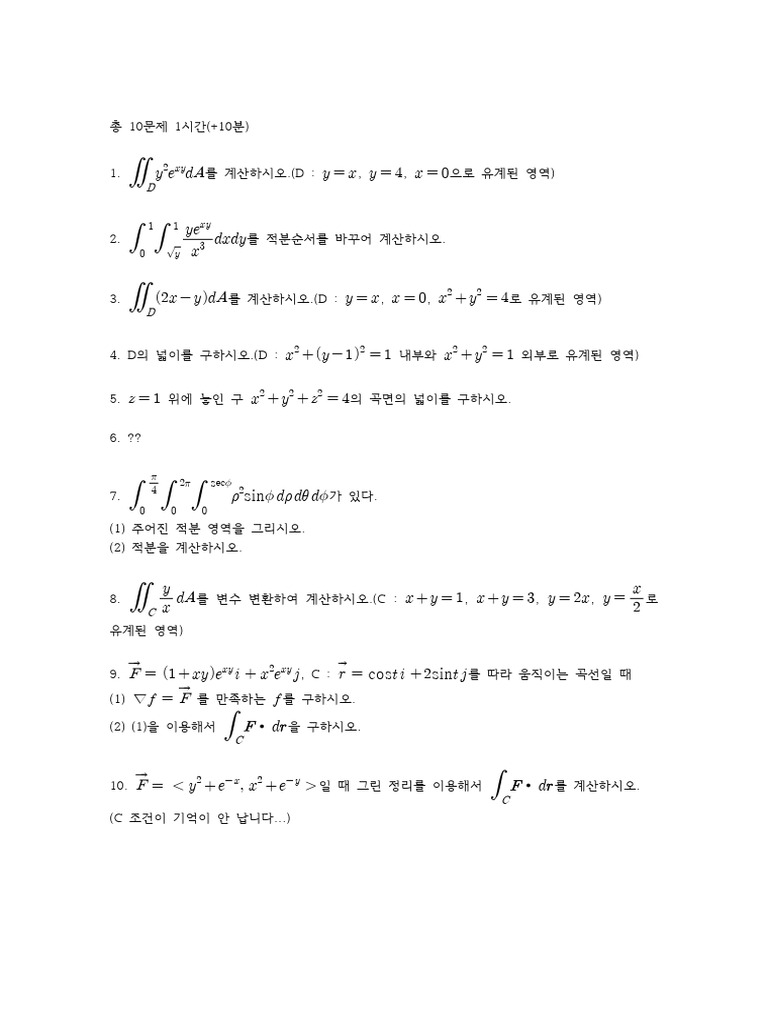 총 10문제 1시간(+10분)
1. ∬_D y²e^{xy}dA를 계산하시오.(D : y=x, y=4, x=0으로 유계된 영역)
2. ∫_0^1 ∫_{√y}^1 \frac{ye^{xy}}{x³}dxdy를 적분순서를 바꾸어 계산하시오.
3. ∬_D (2x−y)dA를 계산하시오.(D : y=x, x=0, x²+y²=4로 유계된 영역)
4. D의 넓이를 구하시오.(D : x²+(y−1)²=1 내부와 x²+y²=1 외부로 유계된 영역)
5. z=1 위에 놓인 구 x²+y²+z²=4의 곡면의 넓이를 구하시오.
6. ??
7. ∫_0^{π/4} ∫_0^{2π} ∫_0^{secϕ} ρ²sinϕ dρ dθ dϕ가 있다.
(1) 주어진 적분 영역을 그리시오.
(2) 적분을 계산하시오.
8. ∬_C \frac{y}{x} dA를 변수 변환하여 계산하시오.(C : x+y=1, x+y=3, y=2x, y=\frac{x}{2}로
유계된 영역)
9. \vec{F}=(1+xy)e^{xy}i+x²e^{xy}j, C : \vec{r}=costi+2sintj를 따라 움직이는 곡선일 때
(1) ▽f=\vec{F} 를 만족하는 f를 구하시오.
(2) (1)을 이용해서 ∫_C F• dr을 구하시오.
10. \vec{F}=<y²+e^{−x}, x²+e^{−y}>일 때 그린 정리를 이용해서 ∫_C F• dr를 계산하시오.
(C 조건이 기억이 안 납니다...)